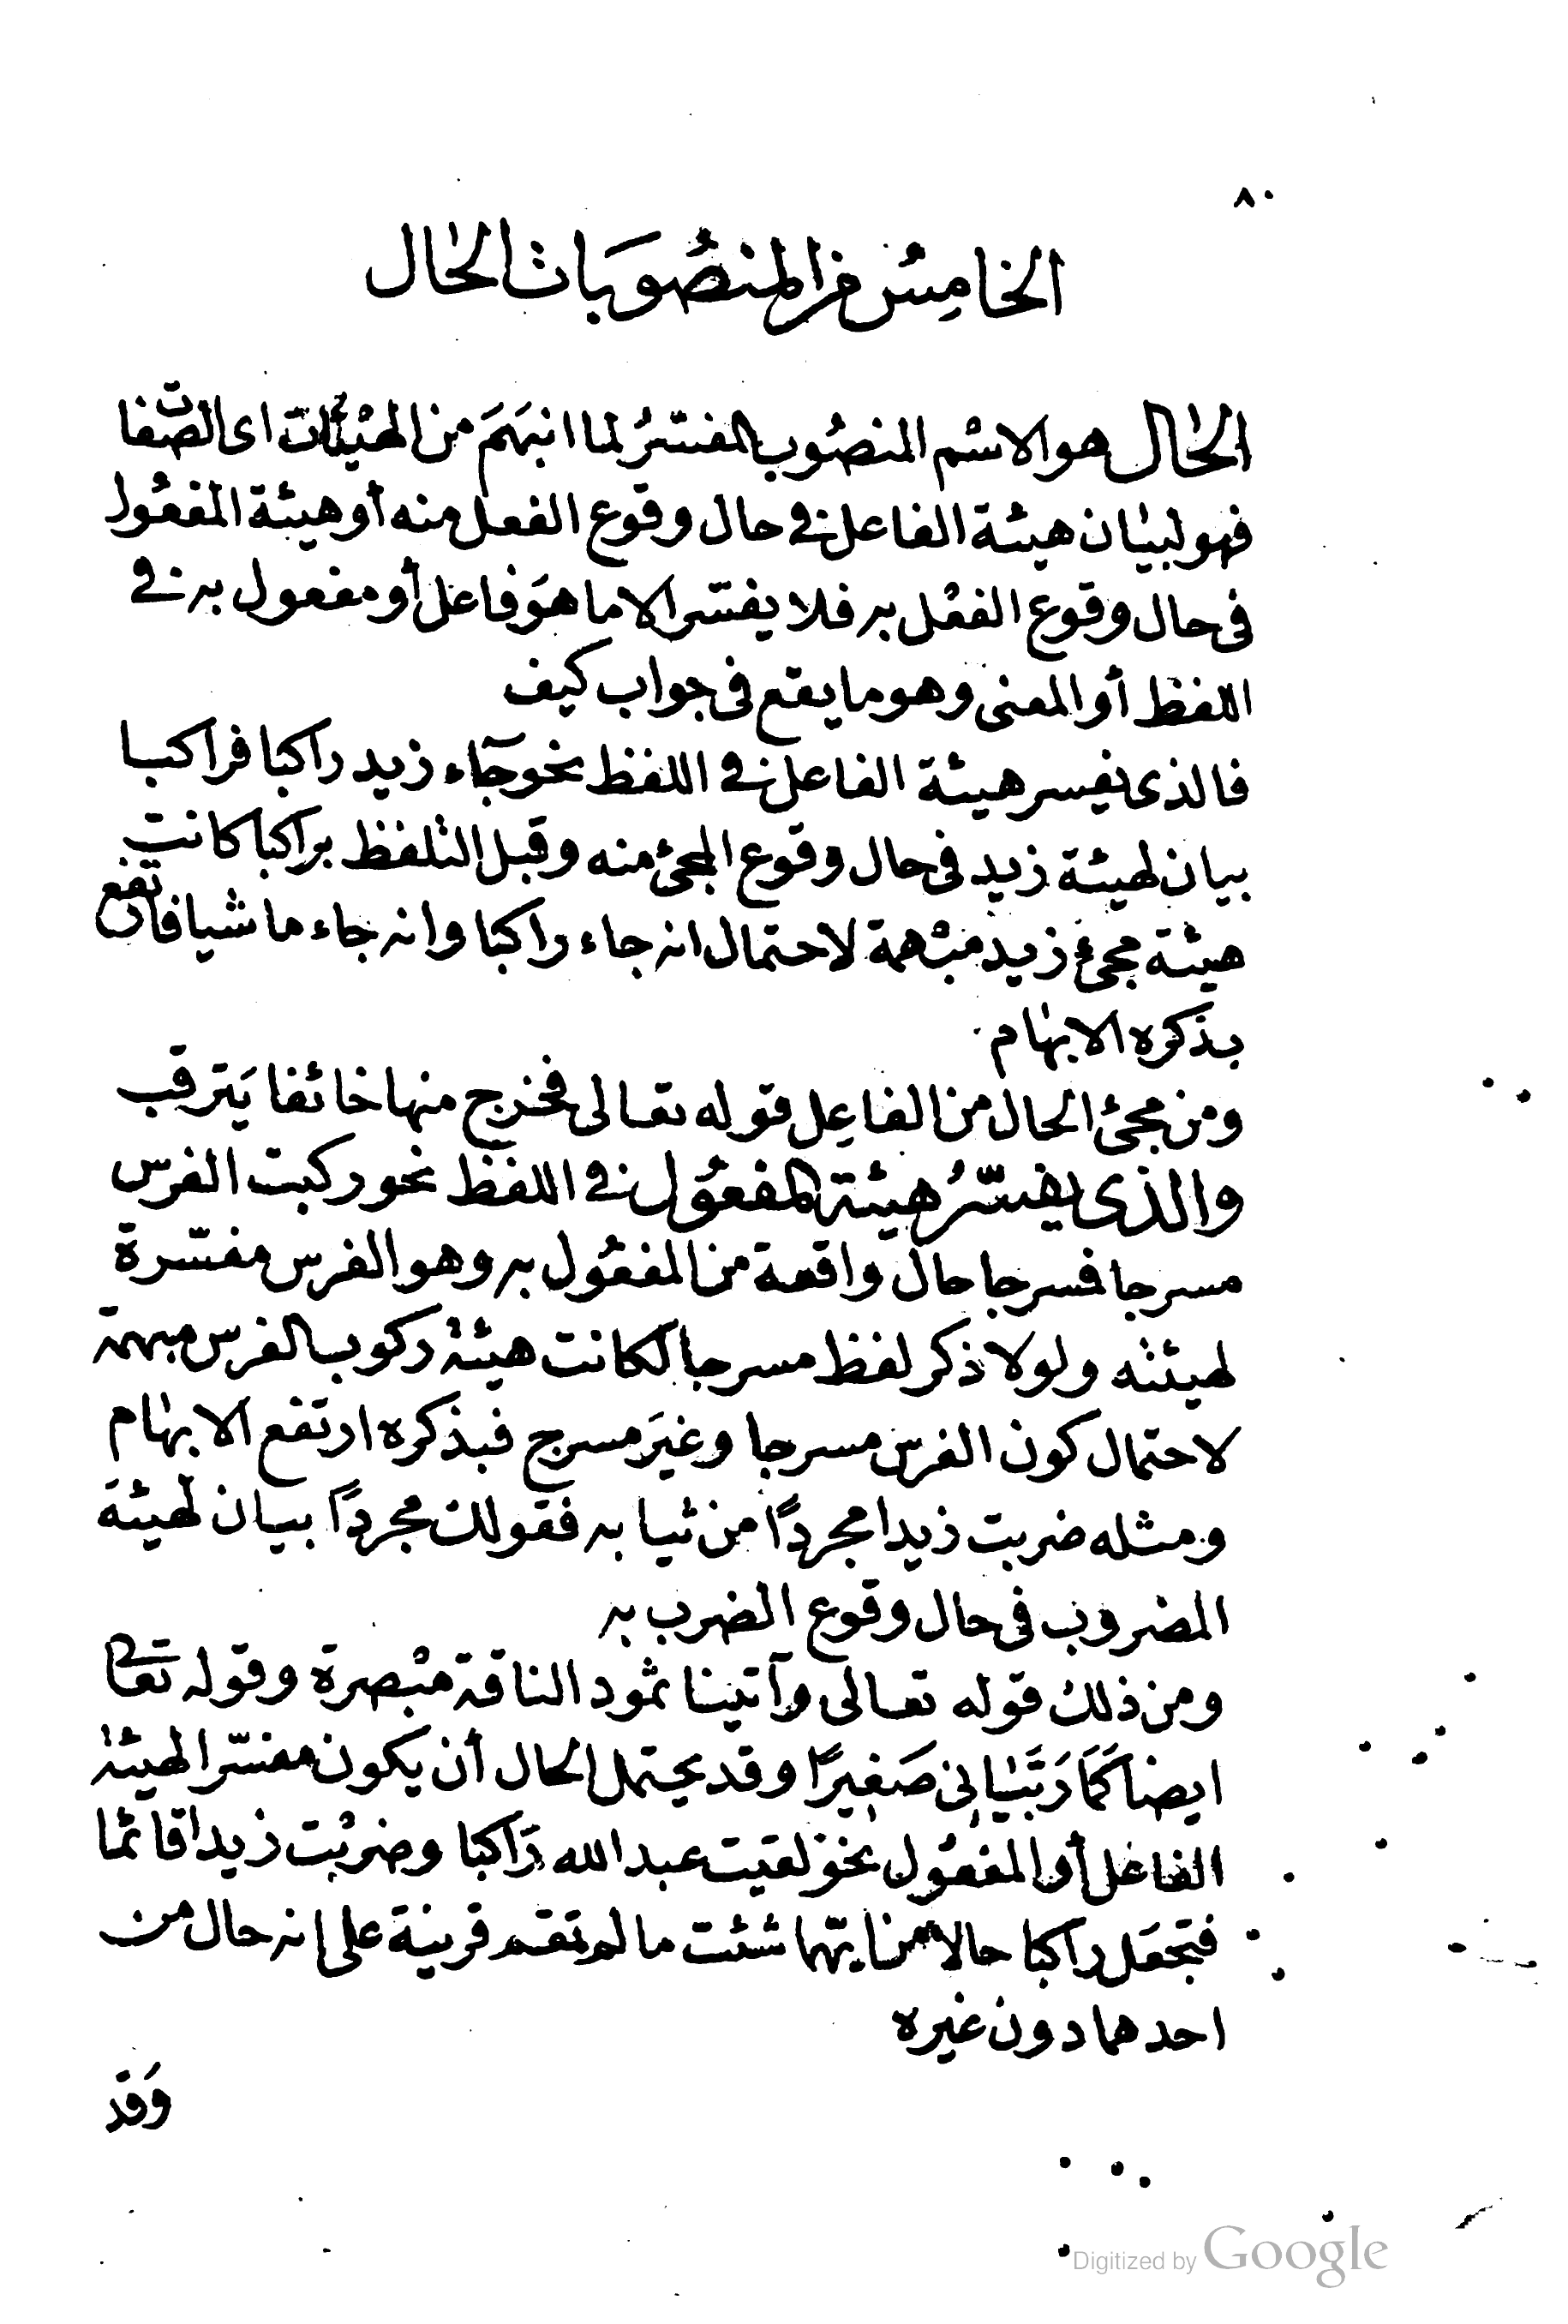 ٨٠
الخامِسُ من المنصُوبَات الحَال
الحَال هو الاسْم المنصُوب المفسّرُ لما انبَهَمَ من الهيْئات اى الصّفات
فهو لبيَان هيئة الفاعل فى حال وقوع الفعل منه أو هيئة المفعُول
فى حال وقوع الفعْل به فلا يفسّر الا ما هوَ فاعل أو مفعول به فى
اللفظ أو المعنى وهو ما يقع فى جواب كيف
فالذى يفسر هيئة الفاعل فى اللفظ نحو جآء زيد راكبا فراكبا
بيان لهيئة زيد فى حال وقوع المجئ منه وقبل التلفظ براكبا كانت
هيئة مجئ زيد مبْهمة لاحتمال انه جاء راكبا وانه جاء ماشيا فارتفع
بذكره الابهَام
ومن مجئ الحال من الفاعِل قوله تعالى فخرج منها خائفا يَترقب
والذى يفسّرُ هيئة المفعُول فى اللفظ نحو ركبت الفرس
مسرجا فمسرجا حال واقعة من المفعُول به وهو الفرس مفسّرة
لهيئته ولولا ذكر لفظ مسرجا لكانت هيئة ركوب الفرس مبهمة
لاحتمال كون الفرس مسرجا وغيَر مسرج فبذكره ارتفع الابهَام
ومثله ضربت زيدا مجردًا من ثيابه فقولك مجردًا بيان لهيئة
المضروب فى حال وقوع الضرب به
ومن ذلك قوله تعالى وآتينا ثمود الناقة مبْصرة وقوله تعالى
ايضا كَمَا رَبَّيَانِى صَغِيرًا وقد يحتمل الحال أن يكون مفسّرا لهيئة
الفاعل أو المفعُول نحو لقيت عبد الله رَاكبا وضربْت زيدا قائما
فتجعَل راكبا حالا من ايّهما شئت ما لم تقم قرينة على انه حال من
احدهما دون غيره
وَقد
Digitized by Google